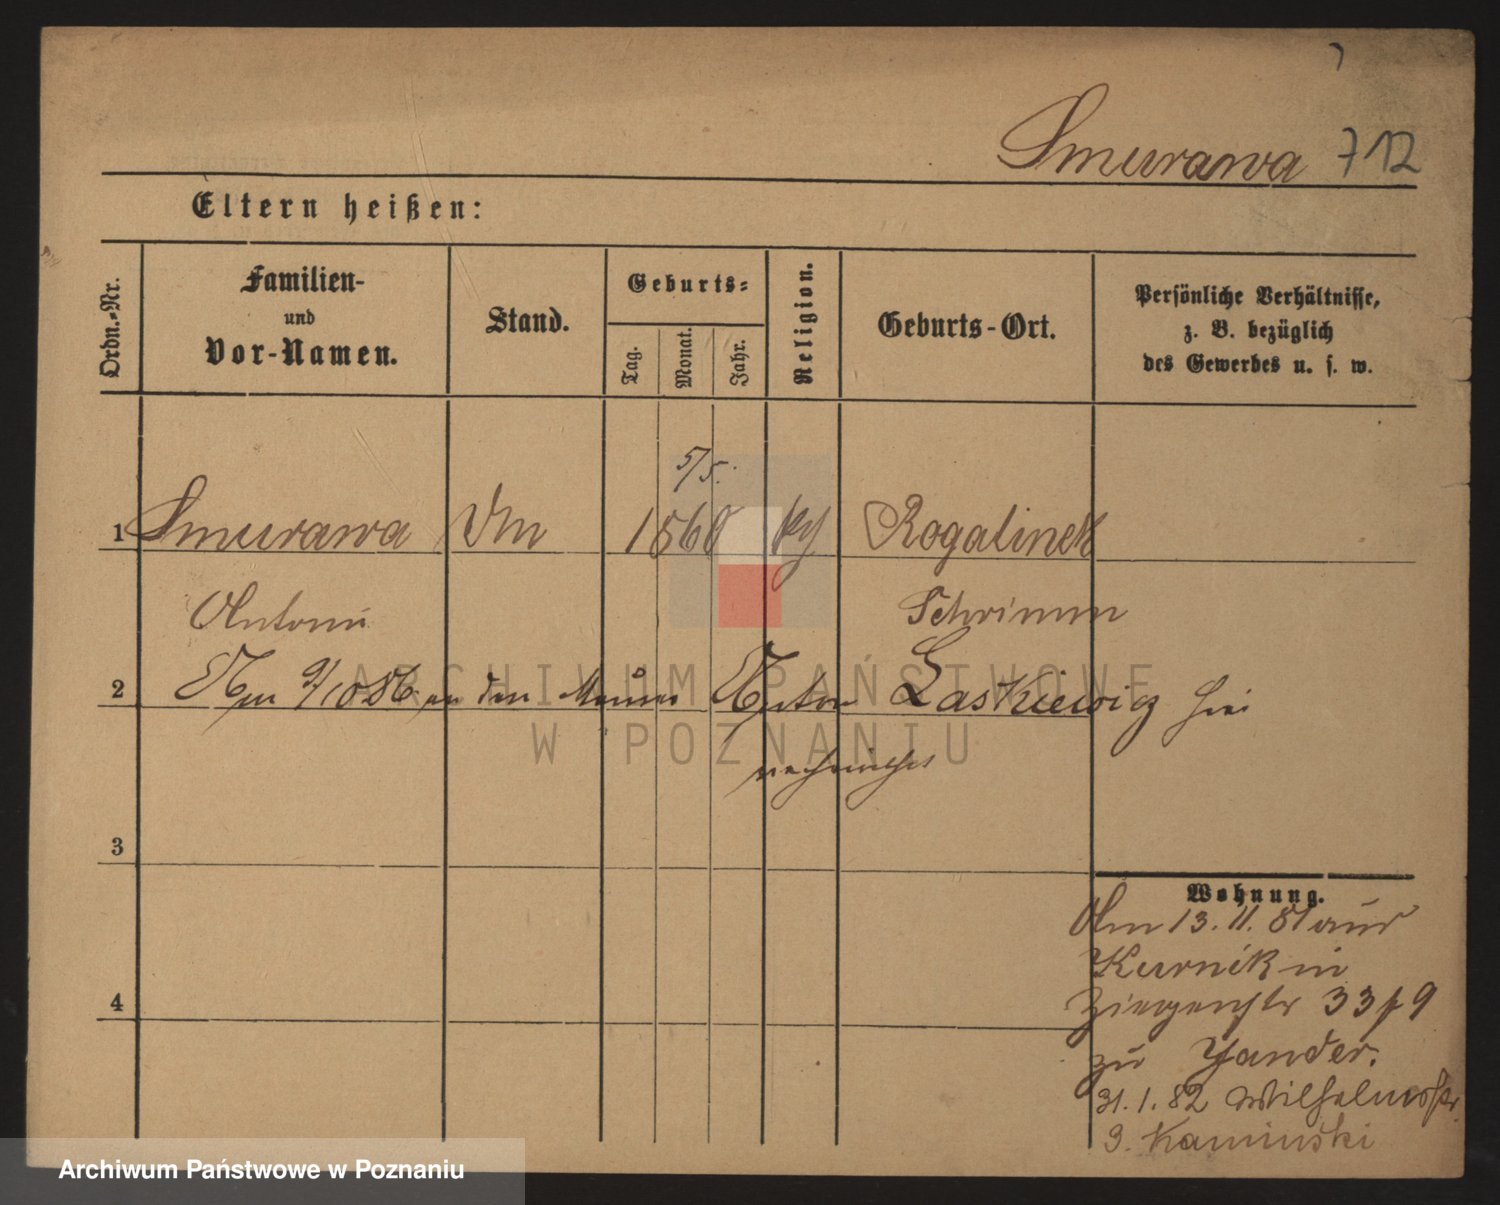 Smurawa 712
Eltern heißen:
Ordn.-Nr.
Familien-
und
Vor-Namen.
Stand.
Geburts-
Tag.
Monat.
Jahr.
Religion.
Geburts-Ort.
Persönliche Verhältnisse,
z. B. bezüglich
des Gewerbes u. s. w.
5/5.
1 Smurawa 1860 Rogalinek
Schrimm
2 9/10 86 an den Maurer Anton Laskiewicz hier
3
Wohnung.
Am 13. 11. 81 aus
Kurnik in
4
Ziegenstr 33 9
zu Zander.
31. 1. 82 Wilhelmsstr.
3. Kaminski
ARCHIWUM PAŃSTWOWE
W POZNANIU
Archiwum Państwowe w Poznaniu